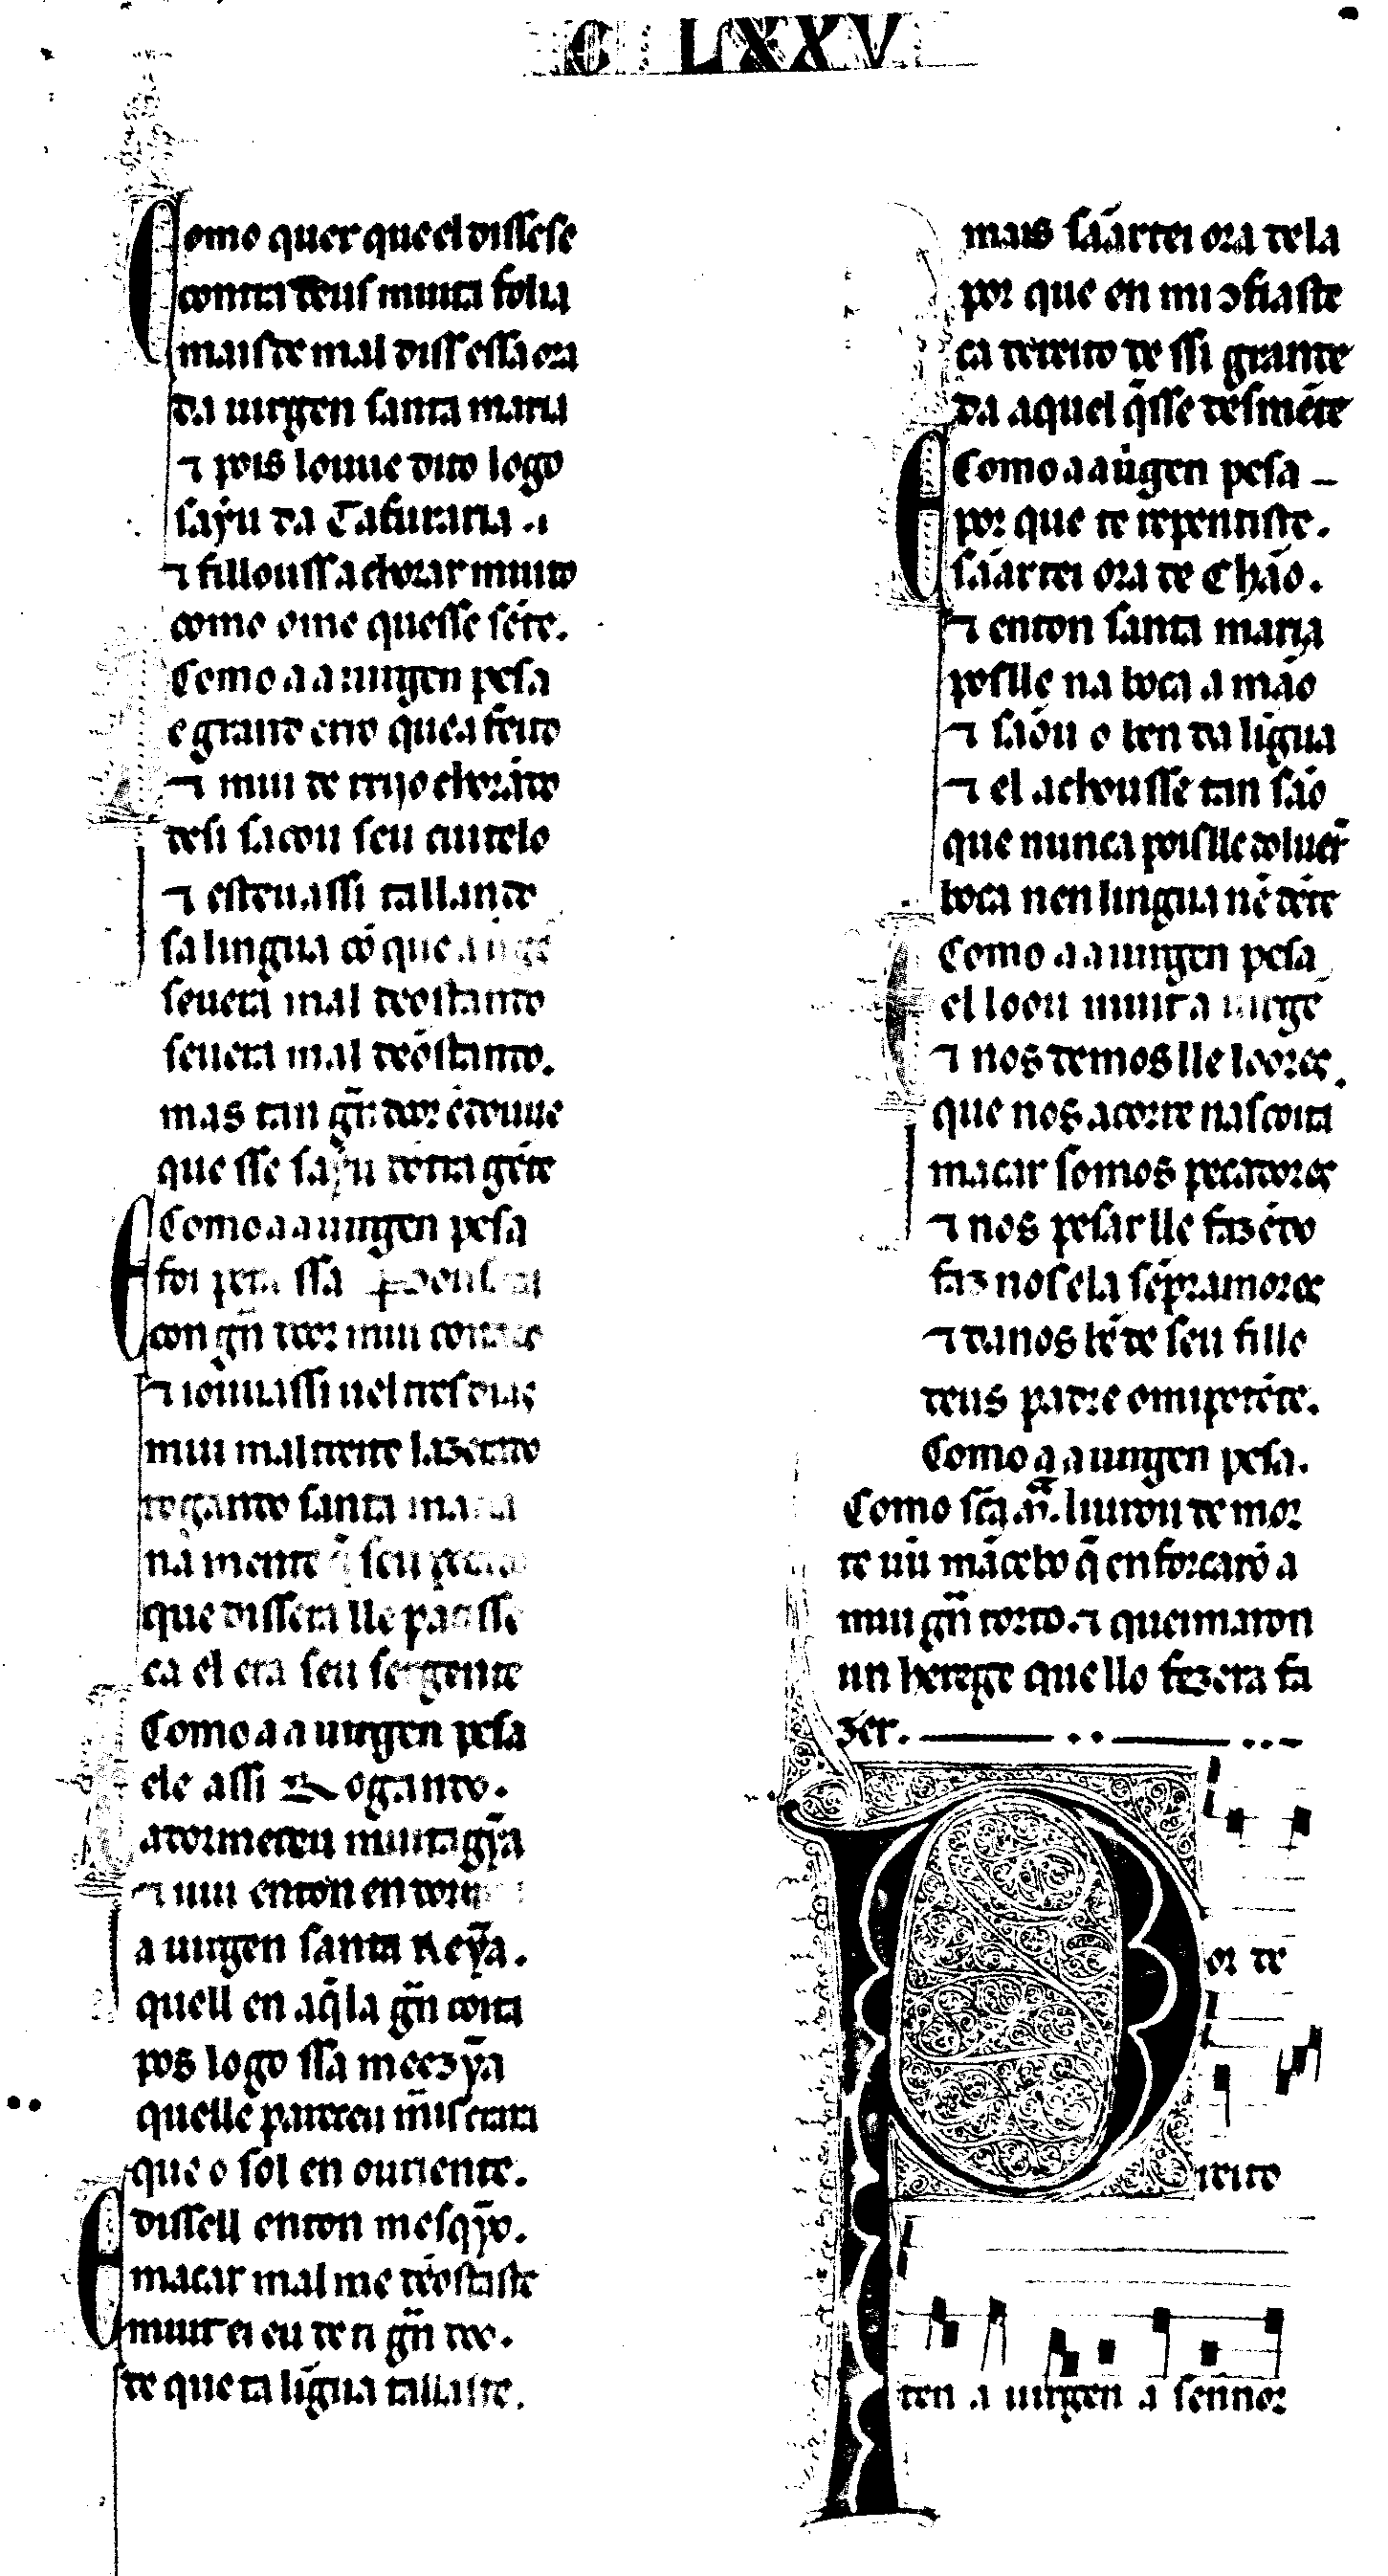 C LXXV
Como quer que el dissesse
contra deus muita folia
mais de mal diss essa ora
da uirgen santa maria
⁊ pois louue dito logo
sayu da Tafuraria.
⁊ filloussa chorar muito
come ome quesse sẽte.
Como a a uirgen pesa
e grand erro que a feito
⁊ mui de rrijo chorãdo
desi sacou seu cuitelo
⁊ esteuassi tallande
sa lingua cõ que a uirgẽ
seuera mal deostando
seuera mal deostando.
mas tan grã door ẽdouue
que sse sayu dentra gẽte
Como a a uirgen pesa
foi pera ssa
con grã door mui coitado
⁊ iouuassi uel tres dias
mui mal treite lazerado
rogando santa maria
na mente q̃ seu pecado
que dissera lle parcisse
ca el era seu sergente
Como a a uirgen pesa
ele assi Rogando.
adormeceu muita gỹa
⁊ uiu enton en
a uirgen santa Reỹa.
quell en aq̃la grã coita
pos logo ssa meezỹa
quelle pareceu m̃iscrara
que o sol en ouriente.
dissell enton mesqỹo.
macar mal me deostaste
muit ei eu de ti grã doo.
de que ta lĩgua tallaste.
mais sãartei ora dela
por que en mi ↄfiaste
ca dereito de ssi grande
da aquel q̃sse desmẽte
Como a a uirgen pesa
por que te repentiste.
sãartei ora de chão.
⁊ enton santa maria
poslle na boca a mão
⁊ saiou o ben da lĩgua
⁊ el achousse tan são
que nunca poislle doluer̃
boca nen lingua nẽ dẽte
Como a a uirgen pesa
el loou muit a uirgẽ
⁊ nos demoslle loores.
que nos acorre nas coita
macar somos pecadores
⁊ nos pesarlle fazẽdo
faznos ela sẽpramores
⁊ danos bẽ de seu fille
deus padre omnipotẽte.
Como a a uirgen pesa.
Como sc̃a m̃. liurou de mor
te uũ mãcebo q̃ enforcarõ a
mui grã torto. ⁊ queimaron
un herege que llo fezera fa
zer.
Por de
ireito
ten a uirgen a sennor